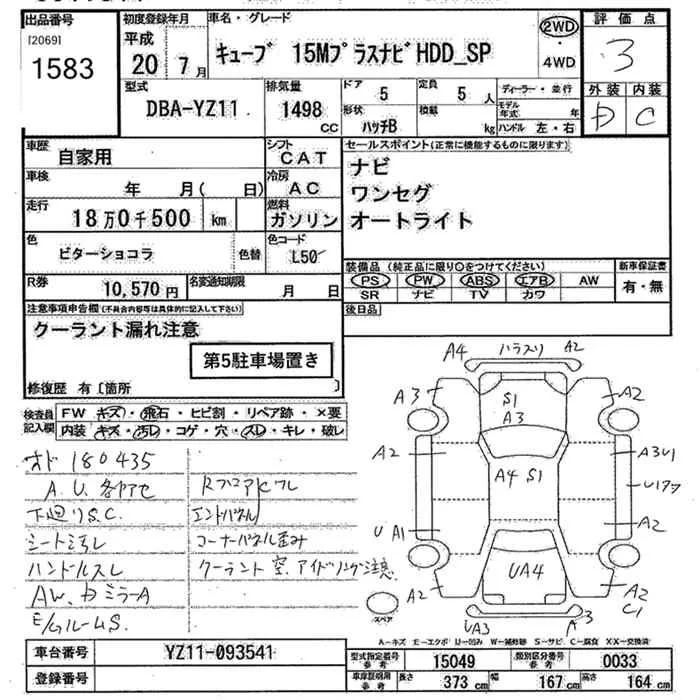 出品番号 初度登録年月 車名・グレード 2WD・4WD 評価点
[2069]
1583
平成
20 7月
キューブ 15MプラスナビHDD_SP
3
外装 内装
D C
型式 排気量 ドア 定員 ディーラー・並行
DBA-YZ11 1498 cc 5 5人
形状 積載 モデル年式 年
ハッチB kg ハンドル 左・右
車歴 自家用
シフト CAT
車検 年 月( 日)
冷房 AC
走行 18万0千500 km
燃料 ガソリン
色 ビターショコラ 色替
色コード L50
R券 10,570円 名変通知期限 月 日
セールスポイント(正常に機能するものに限ります)
ナビ
ワンセグ
オートライト
装備品(純正品に限り○をつけてください) 新車保証書
PS PW ABS エアB AW 有・無
SR ナビ TV カワ
後日品
注意事項申告欄(不具合内容等は具体的に記入して下さい)
クーラント漏れ注意
第5駐車場置き
修復歴 有〔箇所 〕
検査員記入欄
FW キズ・飛石・ヒビ割・リペア跡・×要
内装 キズ・汚レ・コゲ・穴・スレ・キレ・破レ
オド 180435
A.U.各アセ
下廻りS.C.
シートヨゴレ
ハンドルスレ
AW、DミラーA
E/GルームS.
エンドパネル
コーナーパネル歪み
クーラント空、アイドリング注意
A4 ハラスリ A2
A3 S1 A2
A3
A2 A4 S1 A3U1
U A1 A2
A2 UA4 A2
C1
UA3 A3
スペア
A-キズ E-エクボ U-凹み W-補修跡 S-サビ C-腐食 XX-交換済
車台番号 YZ11-093541
登録番号
型式指定番号 参考 15049 類別区分番号 参考 0033
車庫証明用 参考 長さ 373 cm 幅 167 cm 高さ 164 cm